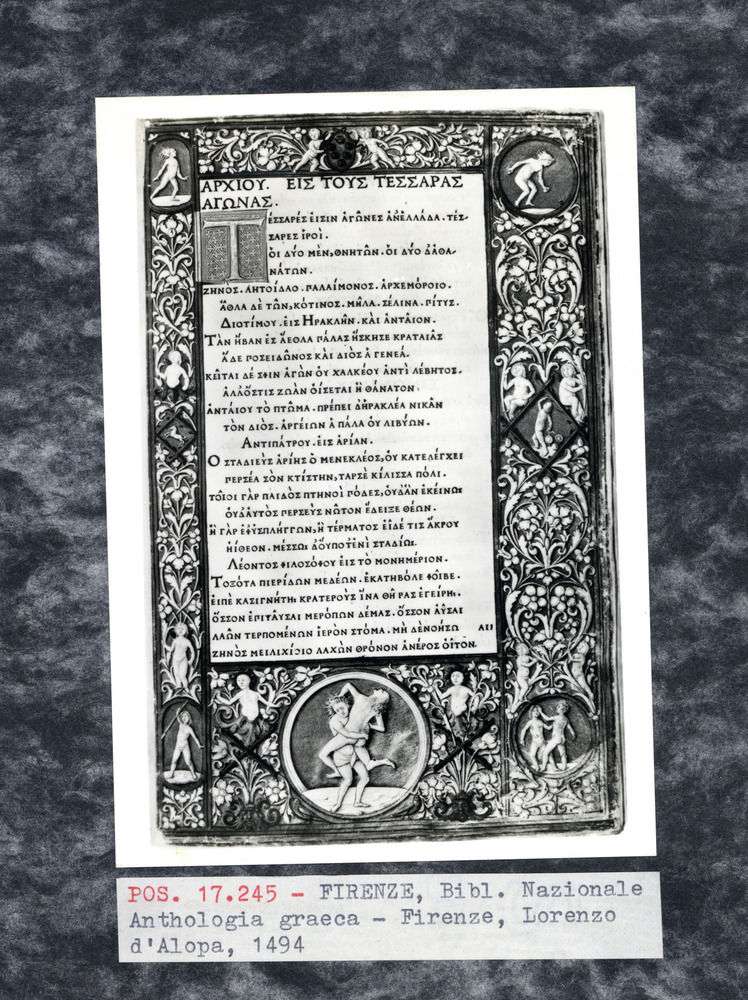 ΑΡΧΙΟΥ. ΕΙΣ ΤΟΥΣ ΤΕΣΣΑΡΑΣ
ΑΓΩΝΑΣ.
ΤΈΣΣΑΡΕΣ ΕἸΣΙΝ ἈΓΩ͂ΝΕΣ ἈΝΕΛΛΆΔΑ. ΤΈΣ-
ΣΑΡΕΣ ἹΡΟΊ.
ΟἹ ΔΎΟ ΜῈΝ, ΘΝΗΤΩ͂Ν. ΟἹ ΔΎΟ ΔἈΘΑ-
ΝΆΤΩΝ.
ΖΗΝῸΣ. ΛΗΤΟΪ́ΔΑΟ. ΠΑΛΑΊΜΟΝΟΣ. ἈΡΧΕΜΌΡΟΙΟ.
ἌΘΛΑ ΔῈ ΤΩ͂Ν, ΚΌΤΙΝΟΣ. ΜΗ͂ΛΑ. ΣΈΛΙΝΑ. ΠΊΤΥΣ.
ΔΙΟΤΊΜΟΥ. ΕἸΣ ἩΡΑΚΛΗ͂Ν. ΚΑῚ ἈΝΤΑΙ͂ΟΝ.
ΤᾺΝ ἭΒΑΝ ἘΣ ἌΕΘΛΑ ΠΆΛΑΣ ἬΣΚΗΣΕ ΚΡΑΤΑΙΑ͂Σ
ἍΔΕ ΠΟΣΕΙΔΩ͂ΝΟΣ ΚΑῚ ΔΙῸΣ Ἁ ΓΕΝΕΆ.
ΚΕΙ͂ΤΑΙ ΔΈ ΣΦΙΝ ἈΓῺΝ ΟΥ̓ ΧΑΛΚΈΟΥ ἈΝΤῚ ΛΈΒΗΤΟΣ.
ἈΛΛΌΣΤΙΣ ΖΩᾺΝ ΟἼΣΕΤΑΙ Ἢ ΘΆΝΑΤΟΝ.
ἈΝΤΑΊΟΥ ΤῸ ΠΤΩ͂ΜΑ. ΠΡΈΠΕΙ ΔἩΡΑΚΛΈΑ ΝΙΚΑ͂Ν
ΤῸΝ ΔΙΌΣ. ἈΡΓΕΊΩΝ Ἁ ΠΆΛΑ ΟΥ̓ ΛΙΒΎΩΝ.
ἈΝΤΙΠΆΤΡΟΥ. ΕἸΣ ἈΡΊΑΝ.
Ὁ ΣΤΑΔΙΕῪΣ ἈΡΊΗΣ Ὁ ΜΕΝΕΚΛΈΟΣ, ΟΥ̓ ΚΑΤΕΛΈΓΧΕΙ
ΠΕΡΣΈΑ ΣῸΝ ΚΤΊΣΤΗΝ, ΤΑΡΣῈ ΚΊΛΙΣΣΑ ΠΌΛΙ.
ΤΟΙ͂ΟΙ ΓᾺΡ ΠΑΙΔῸΣ ΠΤΗΝΟῚ ΠΌΔΕΣ, ΟΥ̓ΔᾺΝ ἘΚΕΊΝΩΙ
ΟΥ̓ΔΑΥ̓ΤῸΣ ΠΕΡΣΕῪΣ ΝΩ͂ΤΟΝ ἜΔΕΙΞΕ ΘΈΩΝ.
Ἢ ΓᾺΡ ἘΦΥΣΠΛΉΓΓΩΝ, Ἢ ΤΈΡΜΑΤΟΣ ΕἾΔΕ ΤΙΣ ἌΚΡΟΥ
ἨΪ́ΘΕΟΝ. ΜΈΣΣΩΙ ΔΟΎΠΟΤΕΝῚ ΣΤΑΔΊΩΙ.
ΛΈΟΝΤΟΣ ΦΙΛΟΣΌΦΟΥ ΕἸΣ ΤῸ ΜΟΝΗΜΈΡΙΟΝ.
ΤΟΞΌΤΑ ΠΙΕΡΊΔΩΝ ΜΕΔΈΩΝ. ἙΚΑΤΗΒΌΛΕ ΦΟΙ͂ΒΕ.
ΕἸΠῈ ΚΑΣΙΓΝΉΤΗΙ ΚΡΑΤΕΡΟῪΣ ἽΝΑ ΘΗ͂ΡΑΣ ἘΓΕΊΡΗΙ.
ὍΣΣΟΝ ἘΠΙΨΑΥ͂ΣΑΙ ΜΕΡΌΠΩΝ ΔΈΜΑΣ. ὍΣΣΟΝ ἈΫ͂ΣΑΙ
ΛΑΩ͂Ν ΤΕΡΠΟΜΈΝΩΝ ἹΕΡῸΝ ΣΤΌΜΑ. ΜῊ ΔΕΝΟΉΣΩ
ΖΗΝῸΣ ΜΕΙΛΙΧΊΟΙΟ ΛΑΧῺΝ ΘΡΌΝΟΝ ἈΝΈΡΟΣ ΟἾΤΟΝ.
POS. 17.245 - FIRENZE, Bibl. Nazionale
Anthologia graeca - Firenze, Lorenzo
d'Alopa, 1494